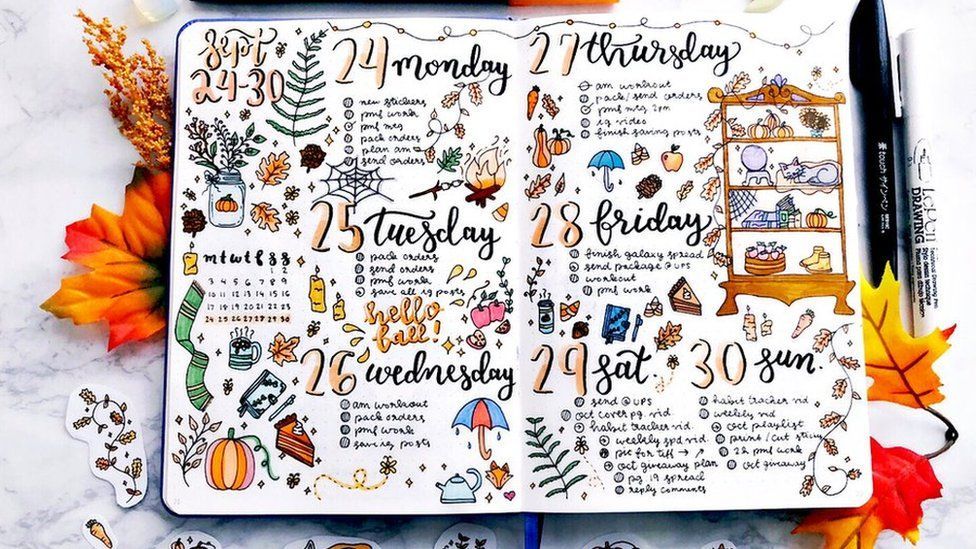 Sept
24-30
24 monday
new stickers
pmf work
pmf mtg
pack orders
plan am
send orders
25 tuesday
pack orders
send orders
pmf work
save all ig posts
hello
fall!
m t w t f s s
1 2
3 4 5 6 7 8 9
10 11 12 13 14 15 16
17 18 19 20 21 22 23
24 25 26 27 28 29 30
26 wednesday
am workout
pack orders
pmf work
saving posts
27 thursday
am workout
pack/send orders
pmf mtg 2pm
ig video
finish saving posts
28 friday
finish galaxy spread
send package @ UPS
workout
pmf work
29 sat.
send @ UPS
oct cover pg. vid.
habit tracker vid.
weekly spd vid.
pic for tiff → ↗
oct giveaway plan
pg 19 spread
reply comments
30 sun.
habit tracker vid
weekly vid
oct playlist
print/cut
2h pmf work
oct giveaway
touch サインペン
DRAWING